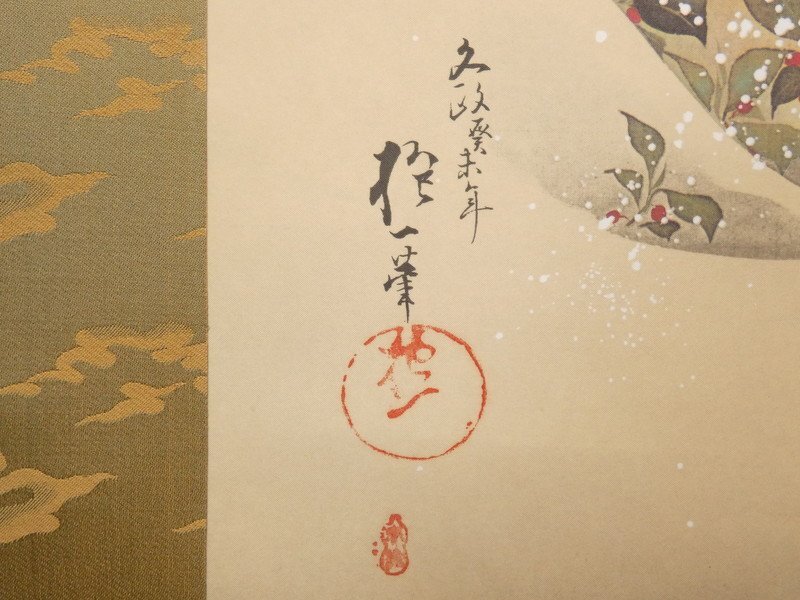 文政癸未年
抱一筆
抱一